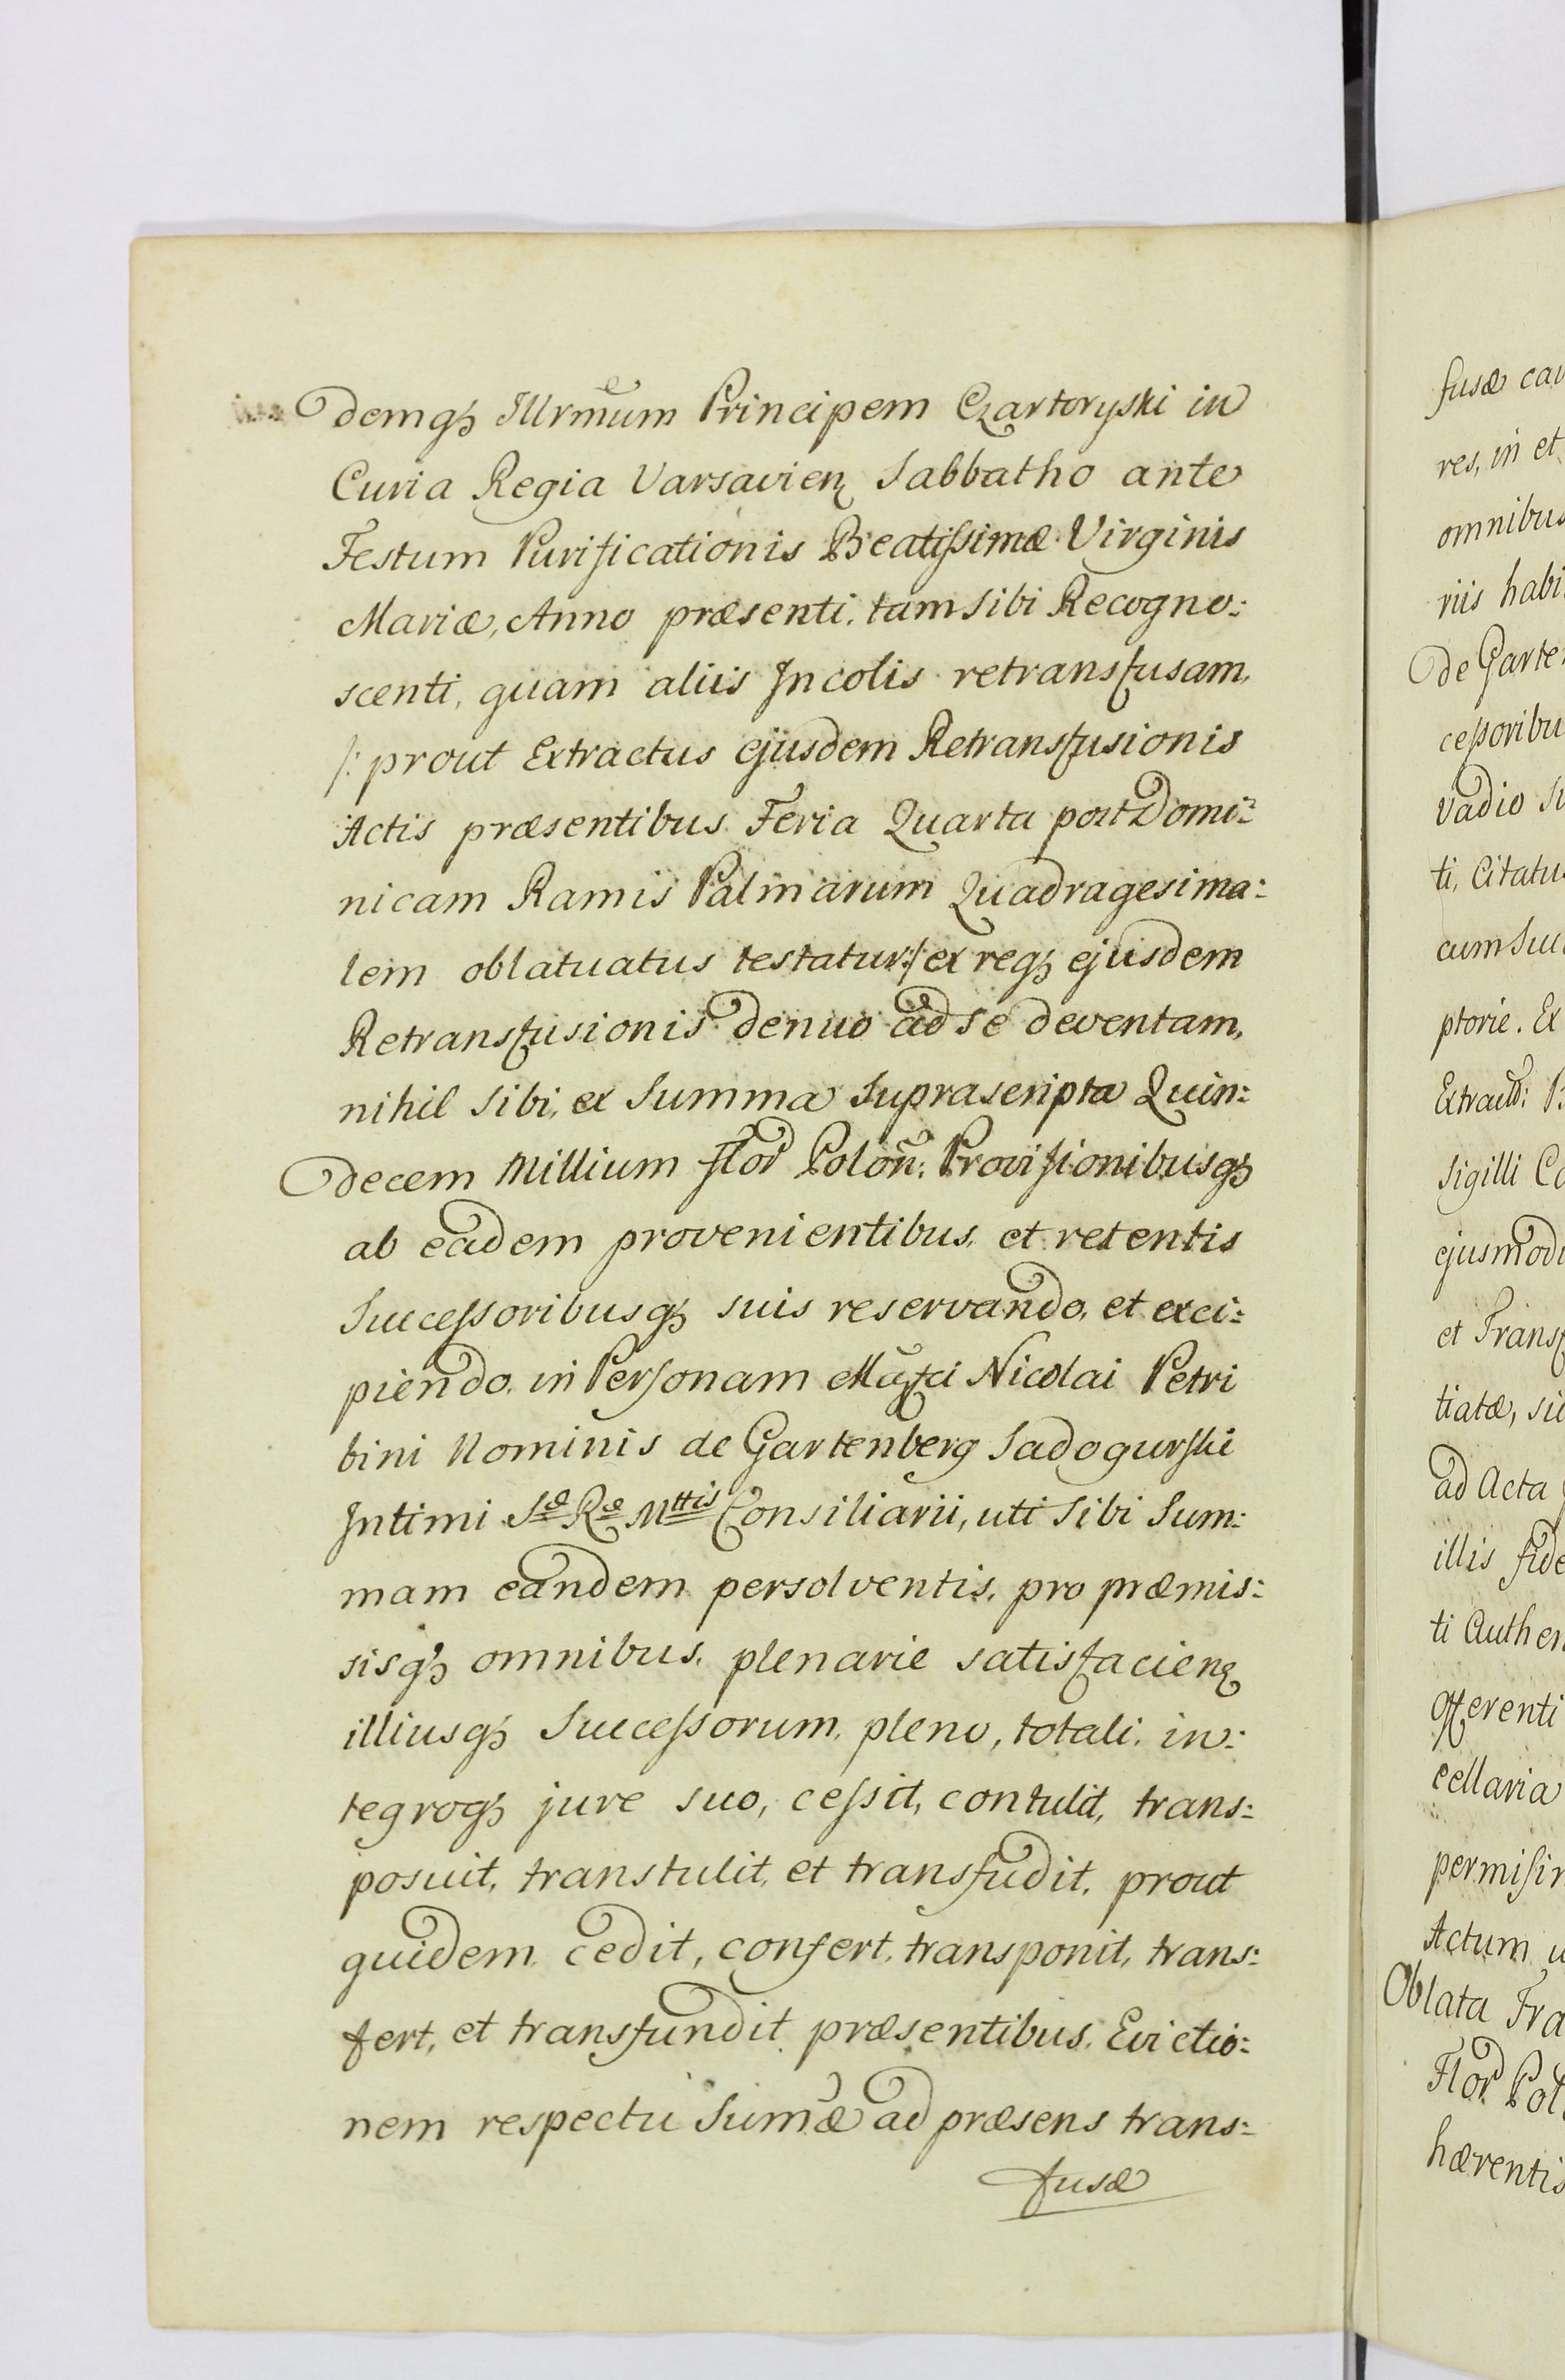 demqȝ Illrm̃um Principem Czartoryski in
Curia Regia Varsavień Sabbatho ante
Festum Purificationis Beatißimæ Virginis
Mariæ, Anno præsenti, tam sibi Recogno:
scenti, quam aliis Incolis retransfusam,
/: prout Extractus ejusdem Retransfusionis
Actis præsentibus Feria Quarta post Domi:
nicam Ramis Palmarum Quadragesima:
lem oblatuatus testatur :/ ex reqȝ ejusdem
Retransfusionis denuo ad se deventam,
nihil sibi, ex Summa Suprascripta Quin:
decem Millium flor Poloñ: Provisionibusqȝ
ab eadem provenientibus, et retentis
Succeßoribusqȝ suis reservando, et exci:
piendo, in Personam Mag̃fci Nicolai Petri
bini Nominis de Gartenberg Sadogurski
Intimi Sæ Ræ Mttis Consiliarii, uti sibi Sum:
mam eandem persolventis, pro præmis:
sisqȝ omnibus, plenarie satisfacień
illiusqȝ Succeßorum, pleno, totali, in:
tegroqȝ jure suo, ceßit, contulit, trans:
posuit, transtulit, et transfudit, prout
quidem cedit, confert, transponit, trans:
fert, et transfundit præsentibus. Evictio:
nem respectu Sum̃æ ad præsens trans:
fusæ
fusæ
res, in et
omnibus
riis habi
de Garte
ceßoribu
vadio su
ti, Citatu
cum Suc
ptorie. Ex
Extract:
Sigilli Co
ejusmodi
et Transf
tiatæ, sic
ad Acta
illis fide
ti Authen
offerenti
cellaria
permisi
Actum u
Oblata Tra
Flor Pol
hærentis